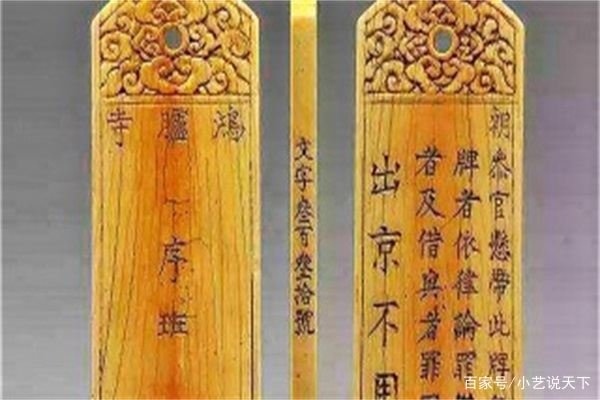 鴻臚寺
序班
文字叁百叁拾號
朝叅官懸帶此牌
牌者依律論罪
者及借與者罪
出京不用
百家号/小艺说天下